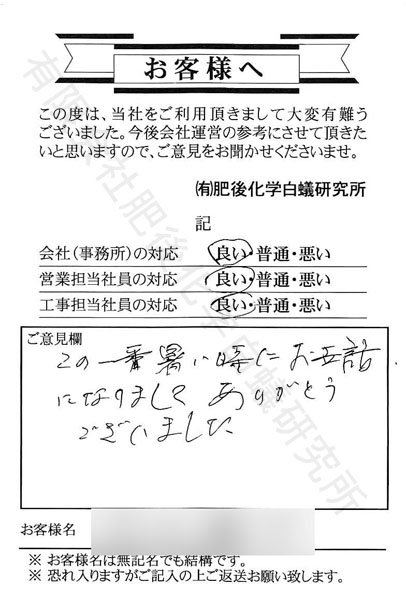 お客様へ
この度は、当社をご利用頂きまして大変有難う
ございました。今後会社運営の参考にさせて頂きた
いと思いますので、ご意見をお聞かせくださいませ。
㈲肥後化学白蟻研究所
記
会社（事務所）の対応 良い・普通・悪い
営業担当社員の対応 良い・普通・悪い
工事担当社員の対応 良い・普通・悪い
ご意見欄
この一番暑い時にお世話
になりまして ありがとう
ございました
お客様名
※ お客様名は無記名でも結構です。
※ 恐れ入りますがご記入の上ご返送お願い致します。
有限会社肥後化学白蟻研究所